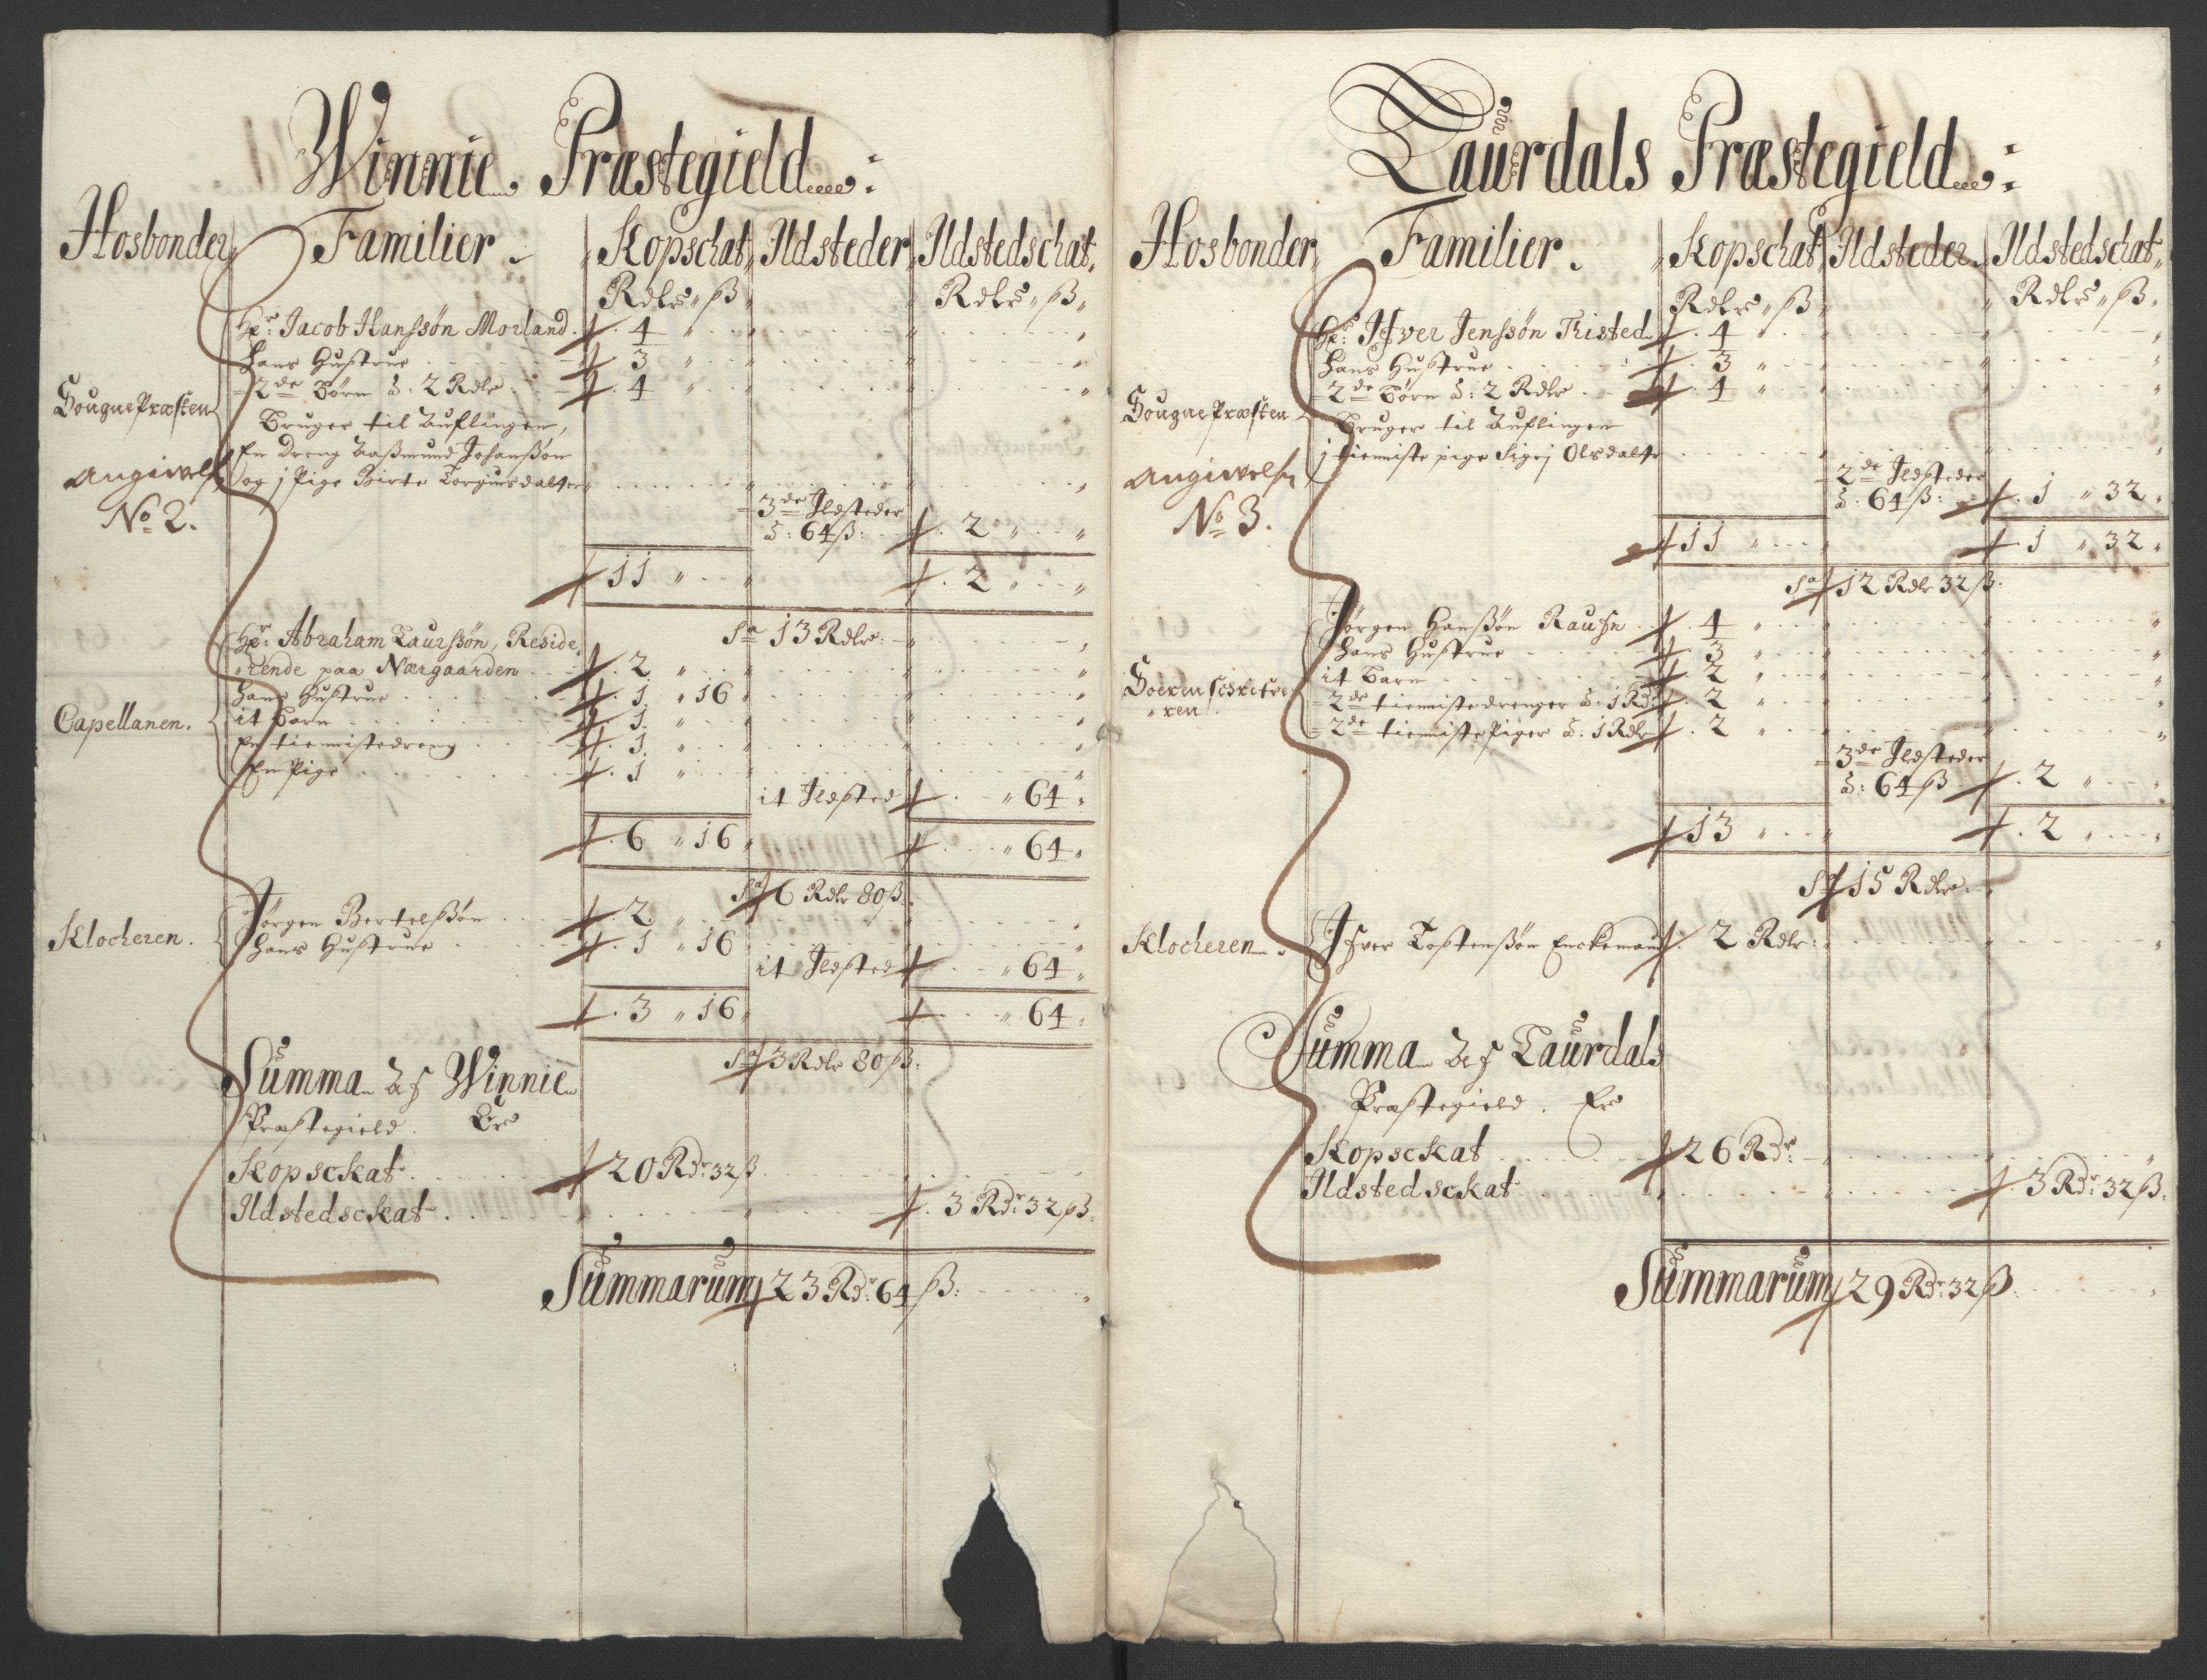 Winnie Præstegield:
Hosbonder, Familier. Kopschat, Ildsteder, Ildstedschat,
Rdlr ß Rdlr ß
Hr: Jacob Hanssøn Morland 4
hans Hustrue 3
2de Børn á 2 Rdlr 4
SougnePræsten
Bruger til Auflingen,
En Dreng Aaßmund Johanßøn
Angivelse og j Pige Birte Torgiersdatter
No 2.
3de Ildsteder
á: 64 ß: 2
11 2
Sa 13 Rdlr
Hr: Abraham Laurssøn, Reside,
rende paa Nærgaarden 2
hans Hustrue 1 16
Capellanen. it Barn 1
En tienistedreng 1
En Pige 1
it Ildsted 64
6 16 64
Sa 6 Rdlr 80 ß
Jørgen Bertelßøn 2
Klocheren. hans Hustrue 1 16
it Ildsted 64
3 16 64
Sa 3 Rdlr 80 ß.
Summa Af Winnie
Præstegield. Er
Kopsckat 20 Rdr 32 ß
Ildstedsckat 3 Rdr: 32 ß.
Summarum 23 Rdr: 64 ß:
Laurdals Præstegield:
Hosbonder, Familier. Kopschat, Ildsteder, Ildstedschat,
Rdlr ß Rdlr ß.
Hr: Ifver Jenssøn Tristed 4
hans Hustrue 3
2de Børn á: 2 Rdlr 4
SougnePræsten
Bruger til Auflingen
j tieniste pige Sigrj Olsdatter
Angivelse
No 3.
2de Ildsteder
á. 64 ß: 1 32
11 1 32
Sa 12 Rdlr 32 ß.
Jørgen Hanßøn 4
hans Hustrue 3
it Barn 2
Sorenschrifve
ren
2de tienistedrenger á. 1 Rdr 2
2de tienistePiger á. 1 Rdlr 2
3de Ildsteder
á: 64 ß 2
13 2
Sa 15 Rdlr
Klocheren. Ifver Tostenßøn Enckemand 2 Rdlr:
Summa Af Laurdals
Præstegield. Er
Kopsckat 26 Rdr:
Ildstedsckat 3 Rdr: 32 ß.
Summarum 29 Rdr: 32 ß